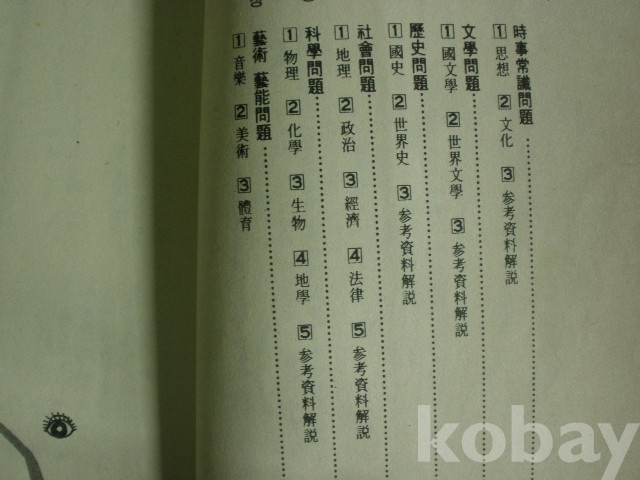 時事常識問題
1 思想 2 文化 3 参考資料解説
文學問題
1 國文學 2 世界文學 3 参考資料解説
歷史問題
1 國史 2 世界史 3 参考資料解説
社會問題
1 地理 2 政治 3 經濟 4 法律 5 参考資料解説
科學問題
1 物理 2 化學 3 生物 4 地學 5 参考資料解説
藝術 藝能問題
1 音樂 2 美術 3 體育
kobay